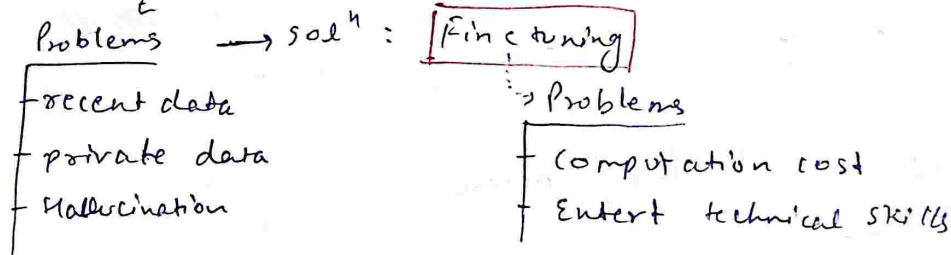 Problems → solⁿ : Fine tuning
Problems
- recent data
- private data
- Hallucination
- Computation cost
- Entert technical skills